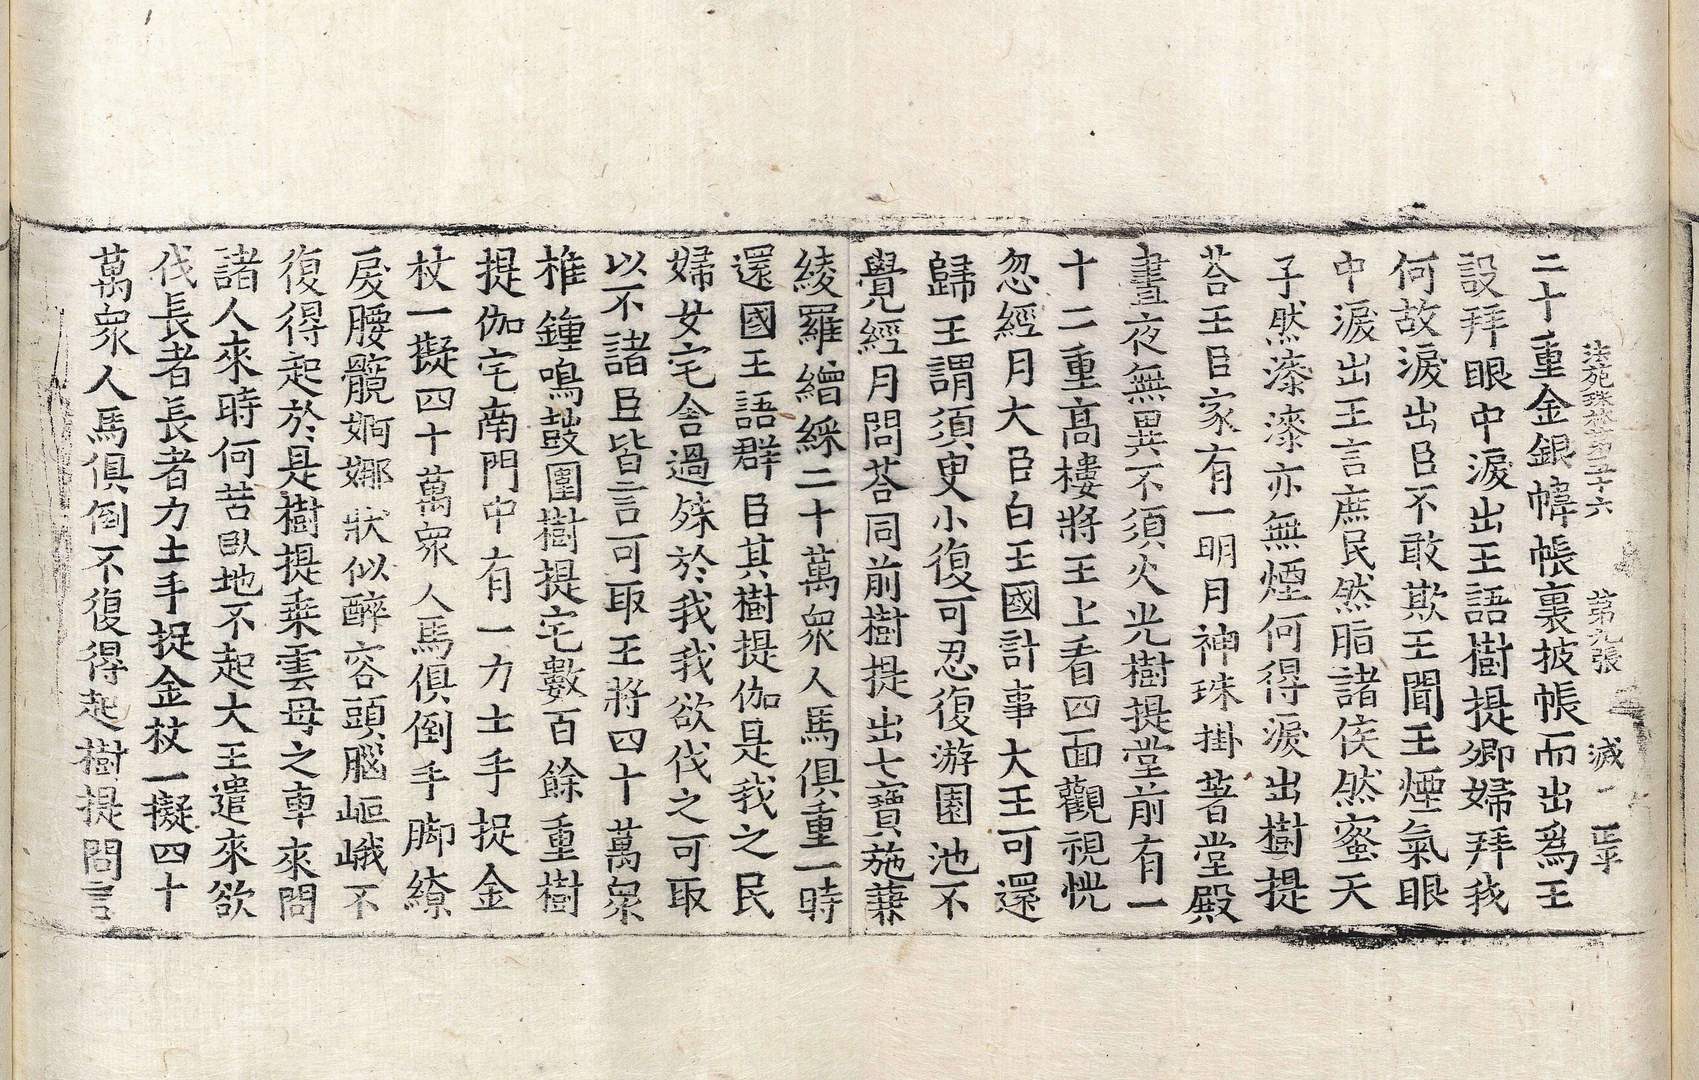 法苑珠林第五十六　第九張　滅一　正平
二十重金銀幃帳裏披帳而出爲王
設拜眼中淚出王語樹提卿婦拜我
何故淚出臣不敢欺王聞王煙氣眼
中淚出王言庶民然脂諸侯然蜜天
子然漆漆亦無煙何得淚出樹提
荅王臣家有一明月神珠掛著堂殿
晝夜無異不須火光樹提堂前有一
十二重高樓將王上看四面觀視恍
忽經月大臣白王國計事大王可還
歸王謂須臾小復可忍復游園池不
覺經月問荅同前樹提出七寶施兼
綾羅繒綵二十萬眾人馬俱重一時
還國王語群臣其樹提伽是我之民
婦女宅舍過殊於我我欲伐之可取
以不諸臣皆言可取王將四十萬眾
椎鍾鳴鼓圍樹提宅數百餘重樹
提伽宅南門中有一力士手捉金
杖一擬四十萬眾人馬俱倒手脚繚
戾腰髖婀娜狀似醉容頭腦嶇峨不
復得起於是樹提乘雲母之車來問
諸人來時何苦臥地不起大王遣來欲
伐長者長者力士手捉金杖一擬四十
萬眾人馬俱倒不復得起樹提問言